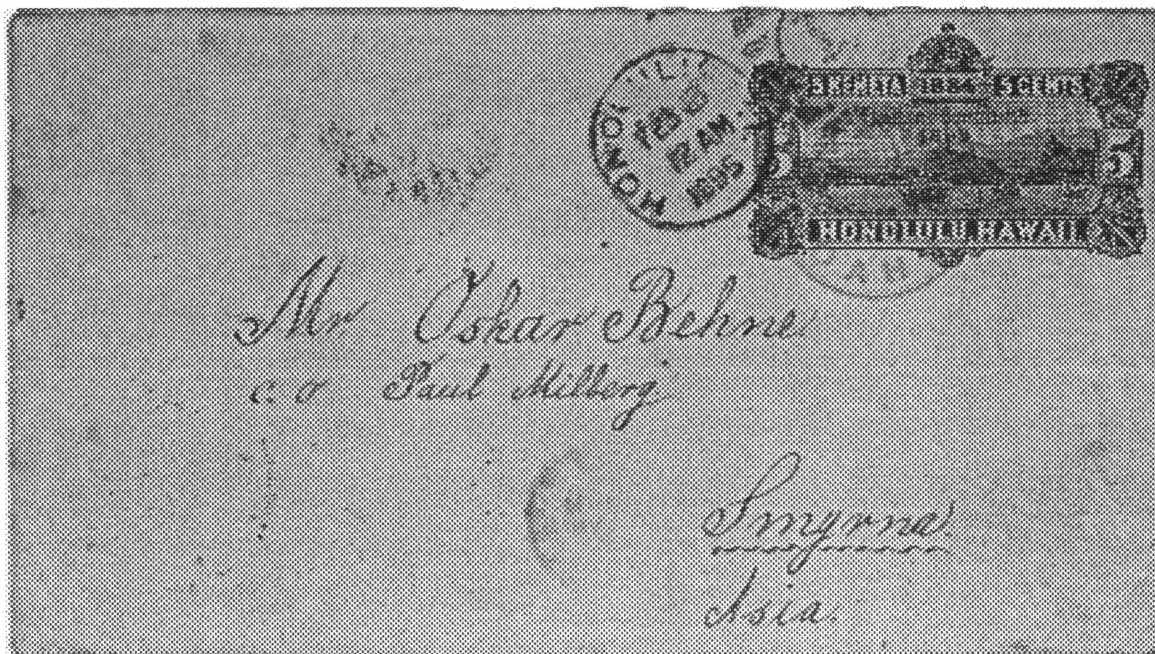 HONOLULU
FEB
12 AM.
1895
5 KENETA 1884 5 CENTS
5 5
HONOLULU, HAWAII
Mr Oskar Behne
c. o Paul Milberg
Smyrna
Asia.